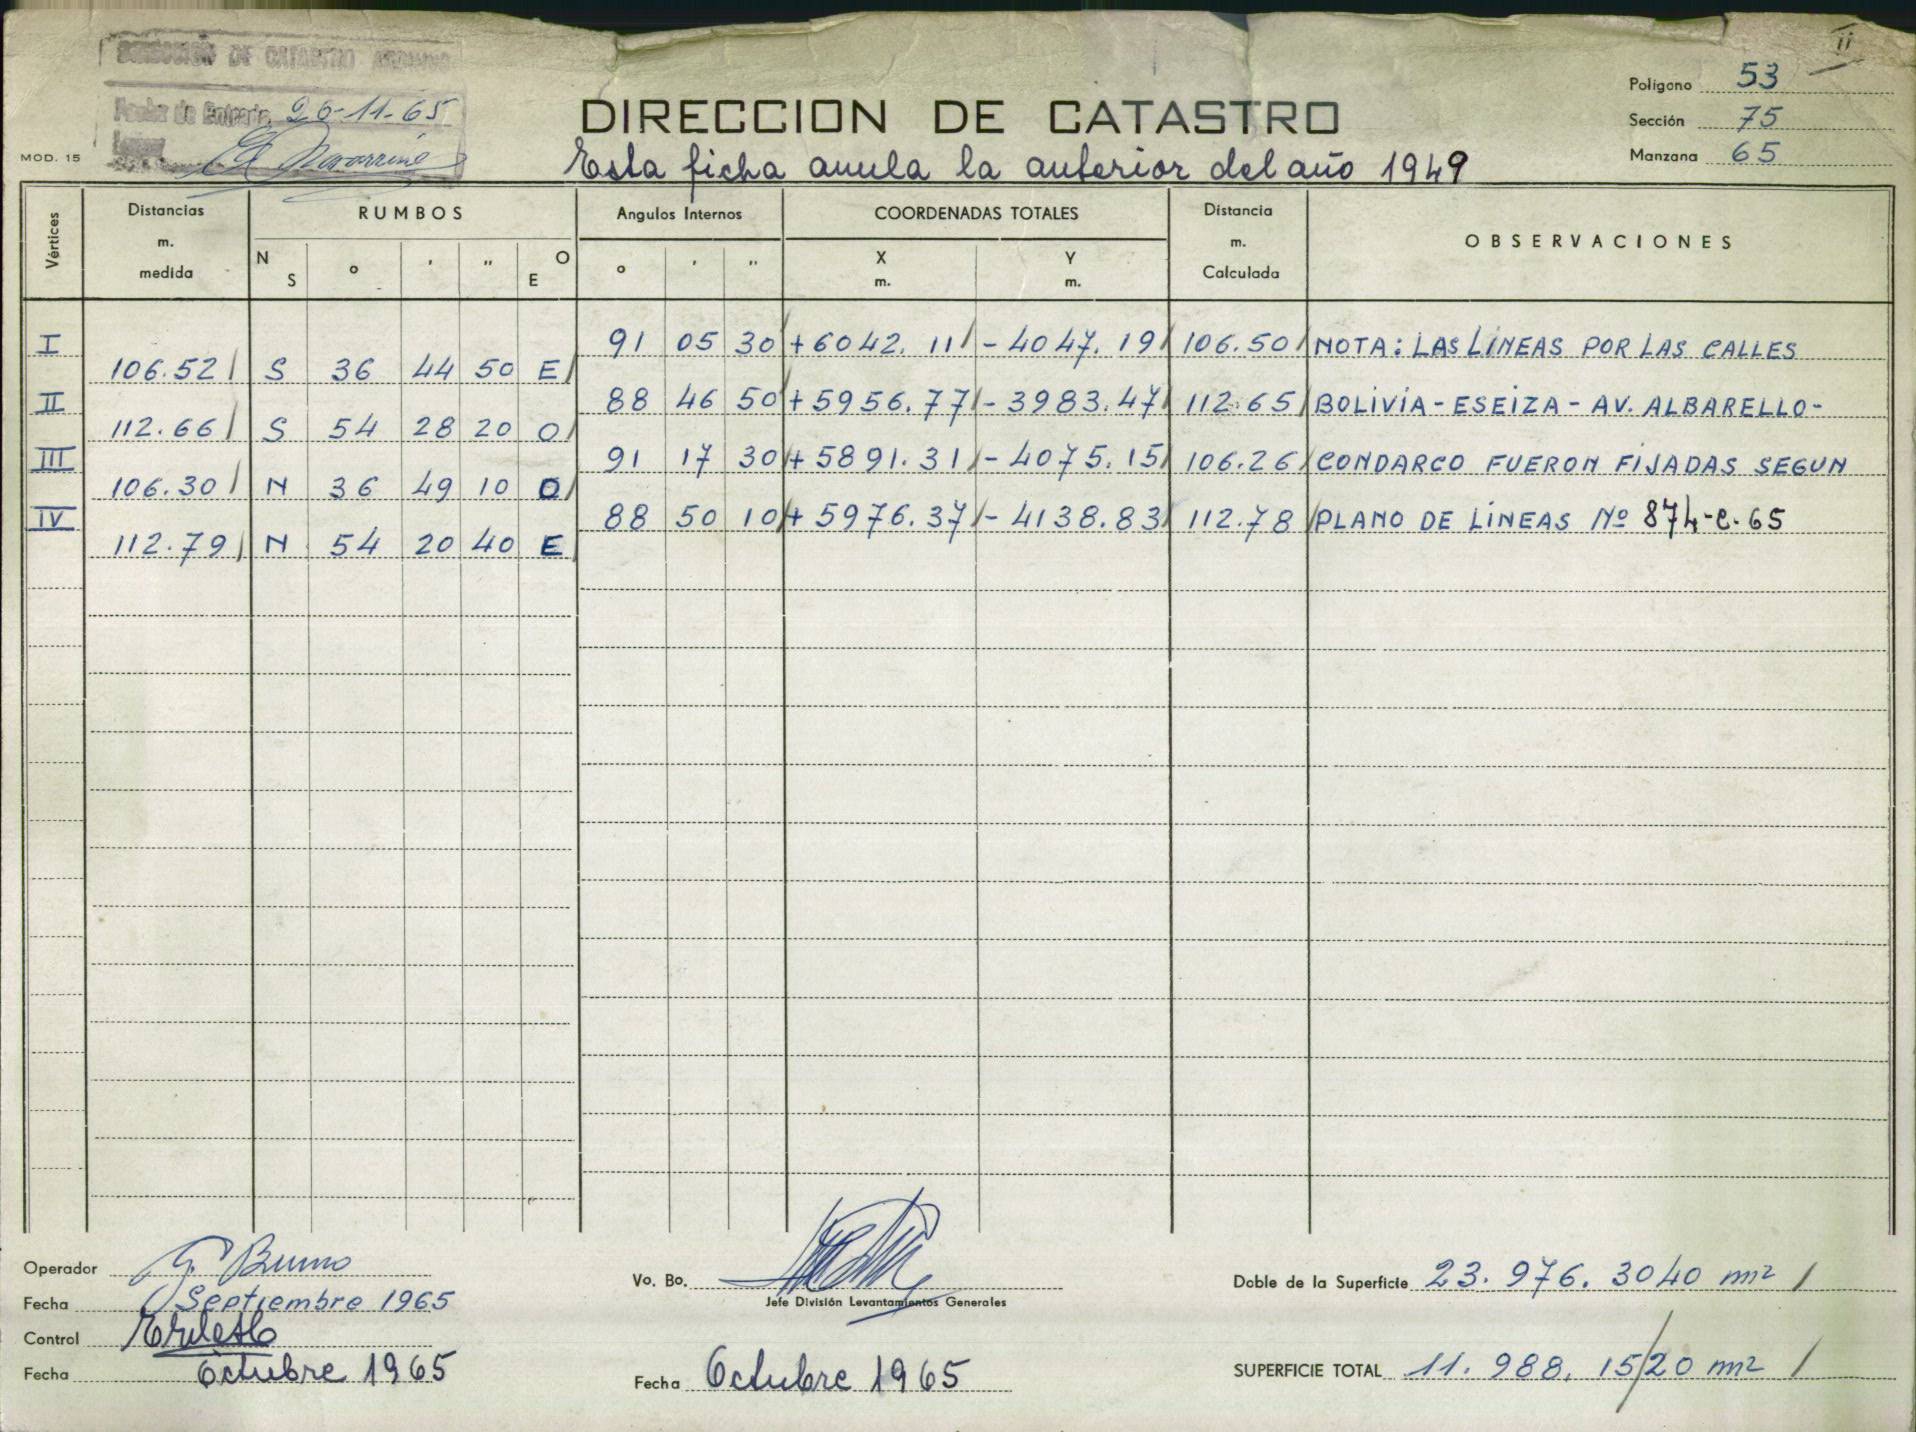 DIRECCION DE CATASTRO ARCHIVO
Fecha de Entrada 26-11-65
MOD. 15
DIRECCION DE CATASTRO
Esta ficha anula la anterior del año 1949
II
Polígono 53
Sección 75
Manzana 65
Vértices
Distancias m. medida
RUMBOS
N S ° ' " O E
Angulos Internos
° ' "
COORDENADAS TOTALES
X m. Y m.
Distancia m. Calculada
OBSERVACIONES
I 91 05 30 +6042.11 -4047.19 106.50 NOTA: LAS LíNEAS POR LAS CALLES
106.52 S 36 44 50 E
II 88 46 50 +5956.77 -3983.47 112.65 BOLíVíA - ESEíZA - AV. ALBARELLO-
112.66 S 54 28 20 O
III 91 17 30 +5891.31 -4075.15 106.26 CONDARCO FUERON FíJADAS SEGUN
106.30 N 36 49 10 O
IV 88 50 10 +5976.37 -4138.83 112.78 PLANO DE LíNEAS Nº 874-C-65
112.79 N 54 20 40 E
Operador G. Bruno
Fecha Septiembre 1965
Control
Fecha Octubre 1965
Vo. Bo.
Jefe División Levantamientos Generales
Fecha Octubre 1965
Doble de la Superficie 23.976.3040 m2
SUPERFICIE TOTAL 11.988.15/20 m2